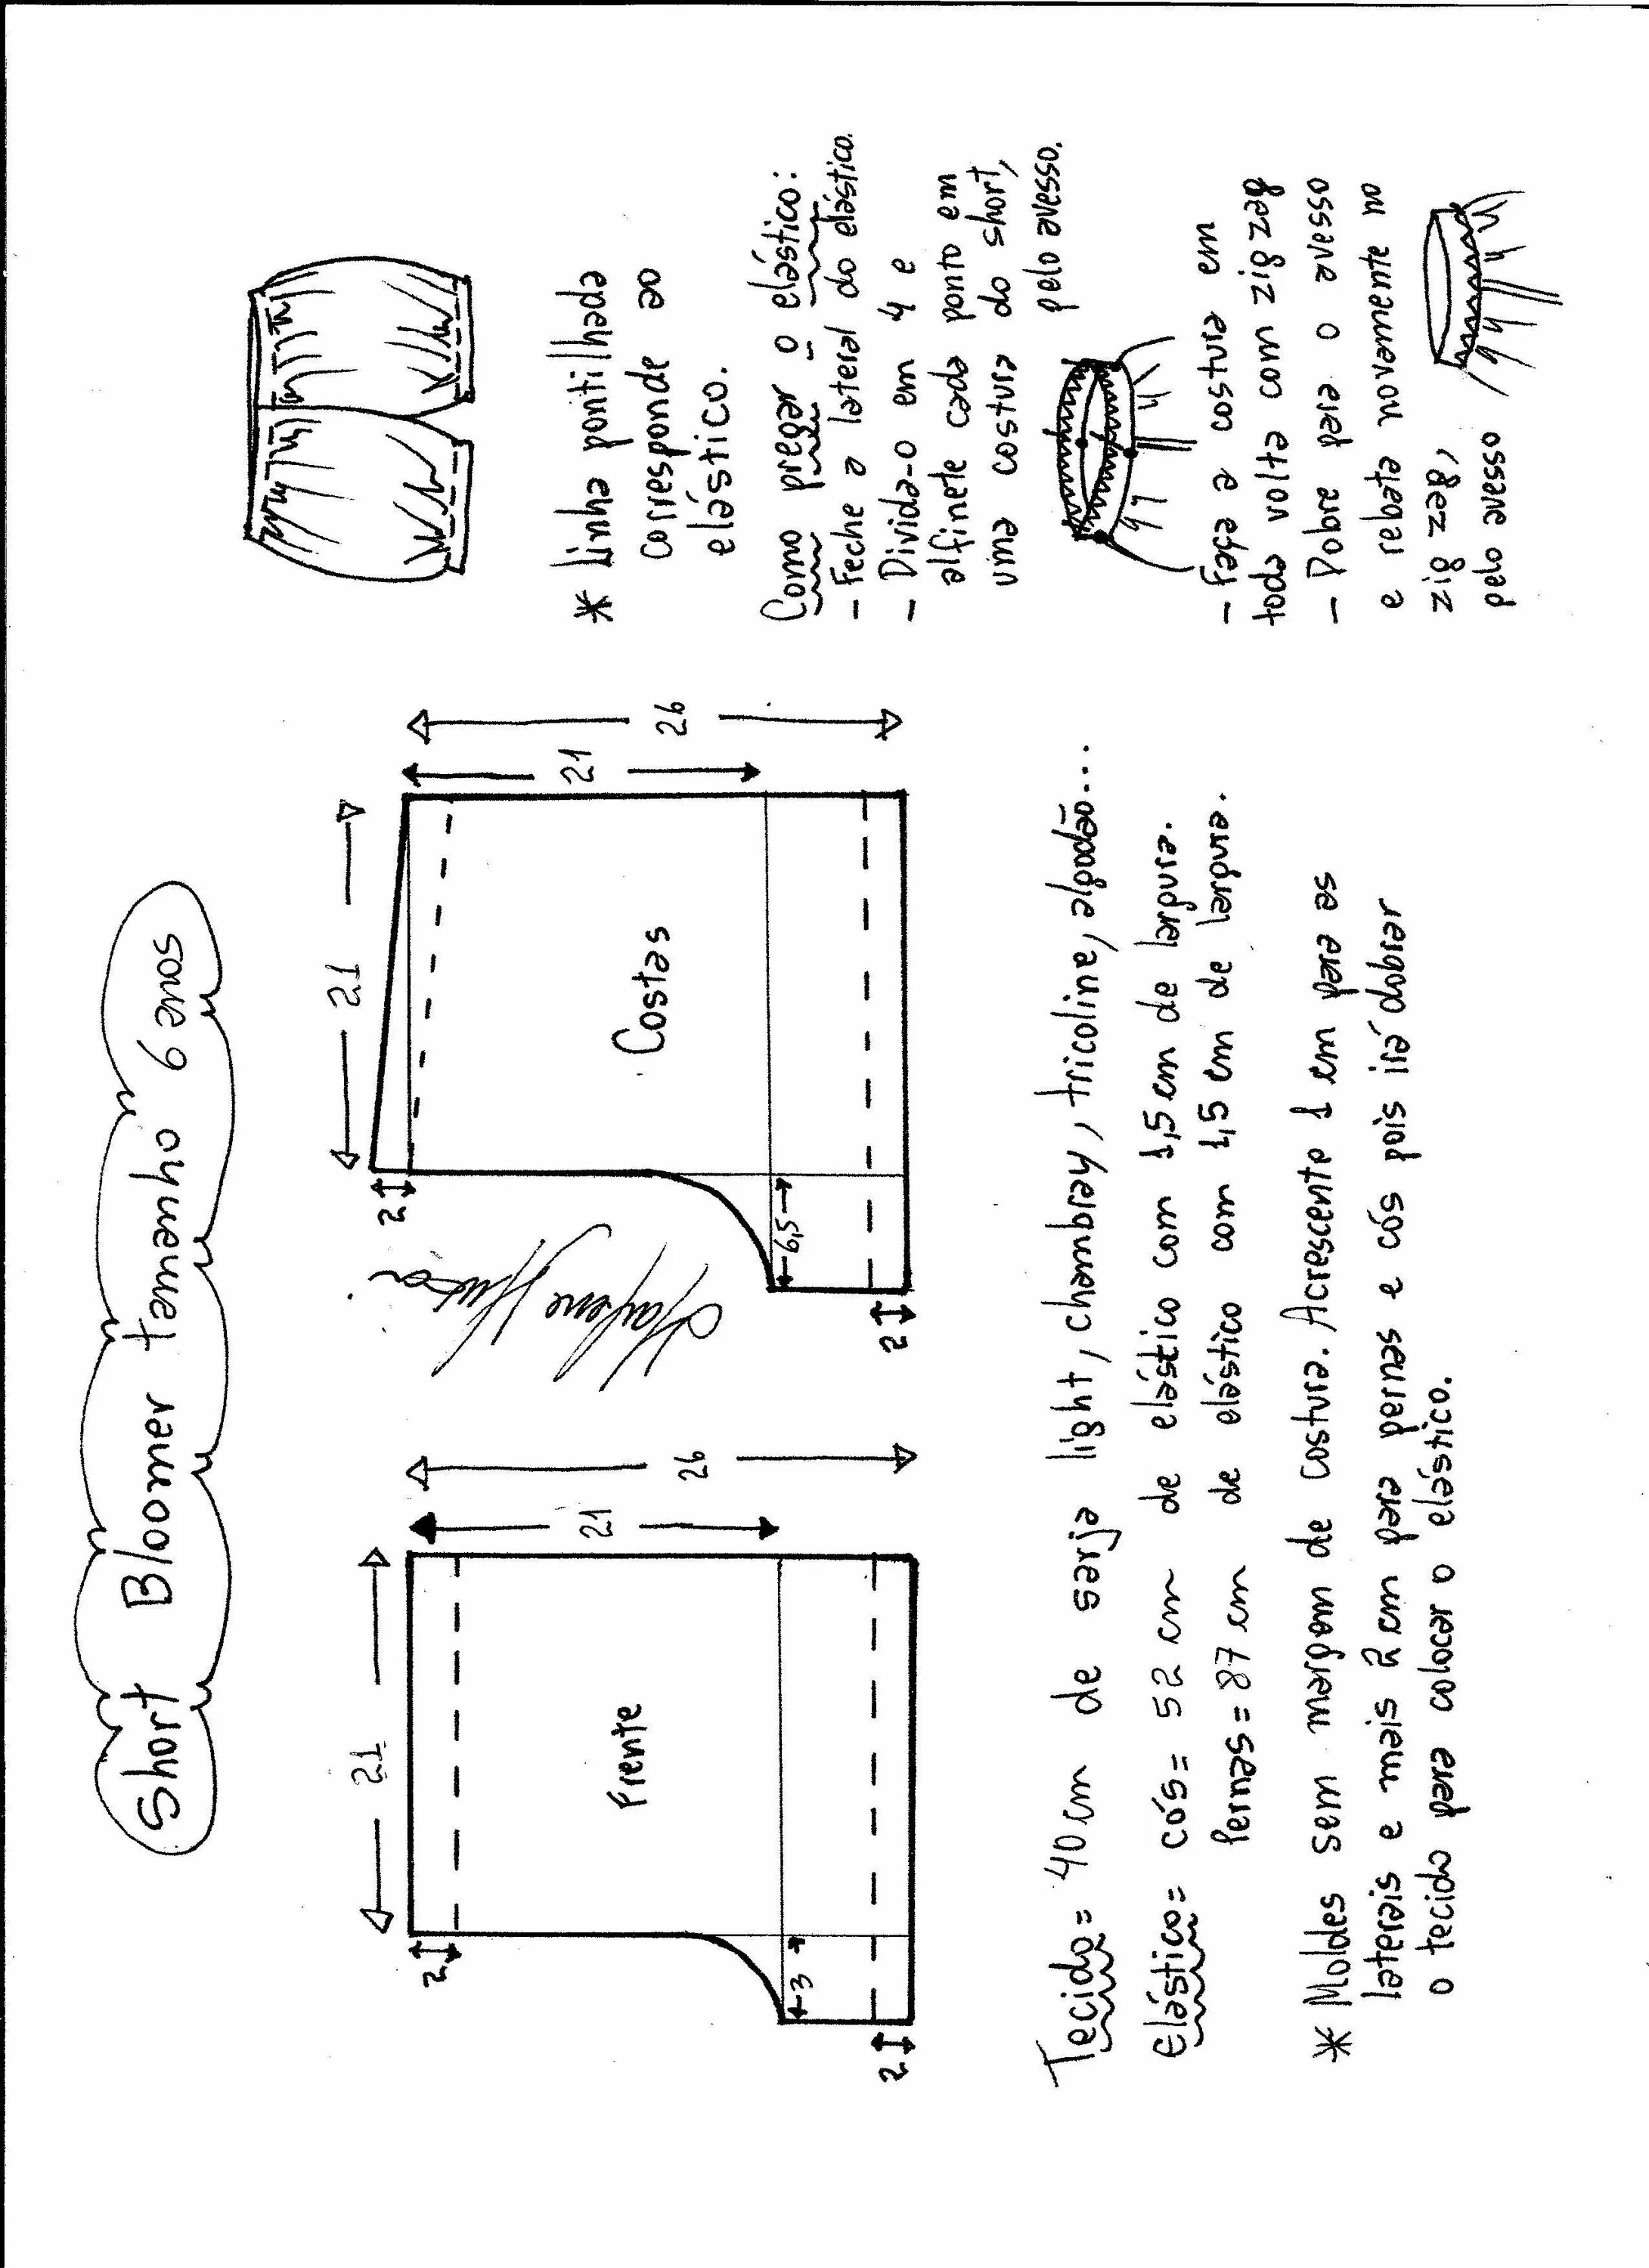 Short Bloomer tamanho 9 anos
21
21
26
2
Frente
3
2
21
21
26
2
Costas
6,5
2
Tecido = 40 cm de sarja light, chambray, tricoline, algodão...
Elástico = cós = 52 cm de elástico com 1,5 cm de largura.
Pernas = 87 cm de elástico com 1,5 cm de largura.
* Moldes sem margem de costura. Acrescente 1 cm para as
laterais e mais 2 cm para pernas e cós pois irá dobrar
o tecido para colocar o elástico.
* Linha pontilhada
corresponde ao
elástico.
Como pregar o elástico:
- Feche a lateral do elástico.
- Divida-o em 4 e
alfinete cada ponto em
uma costura do short,
pelo avesso.
- Faça a costura em
toda volta com zig zag
- Dobre para o avesso
e rebata novamente no
zig zag,
pelo avesso